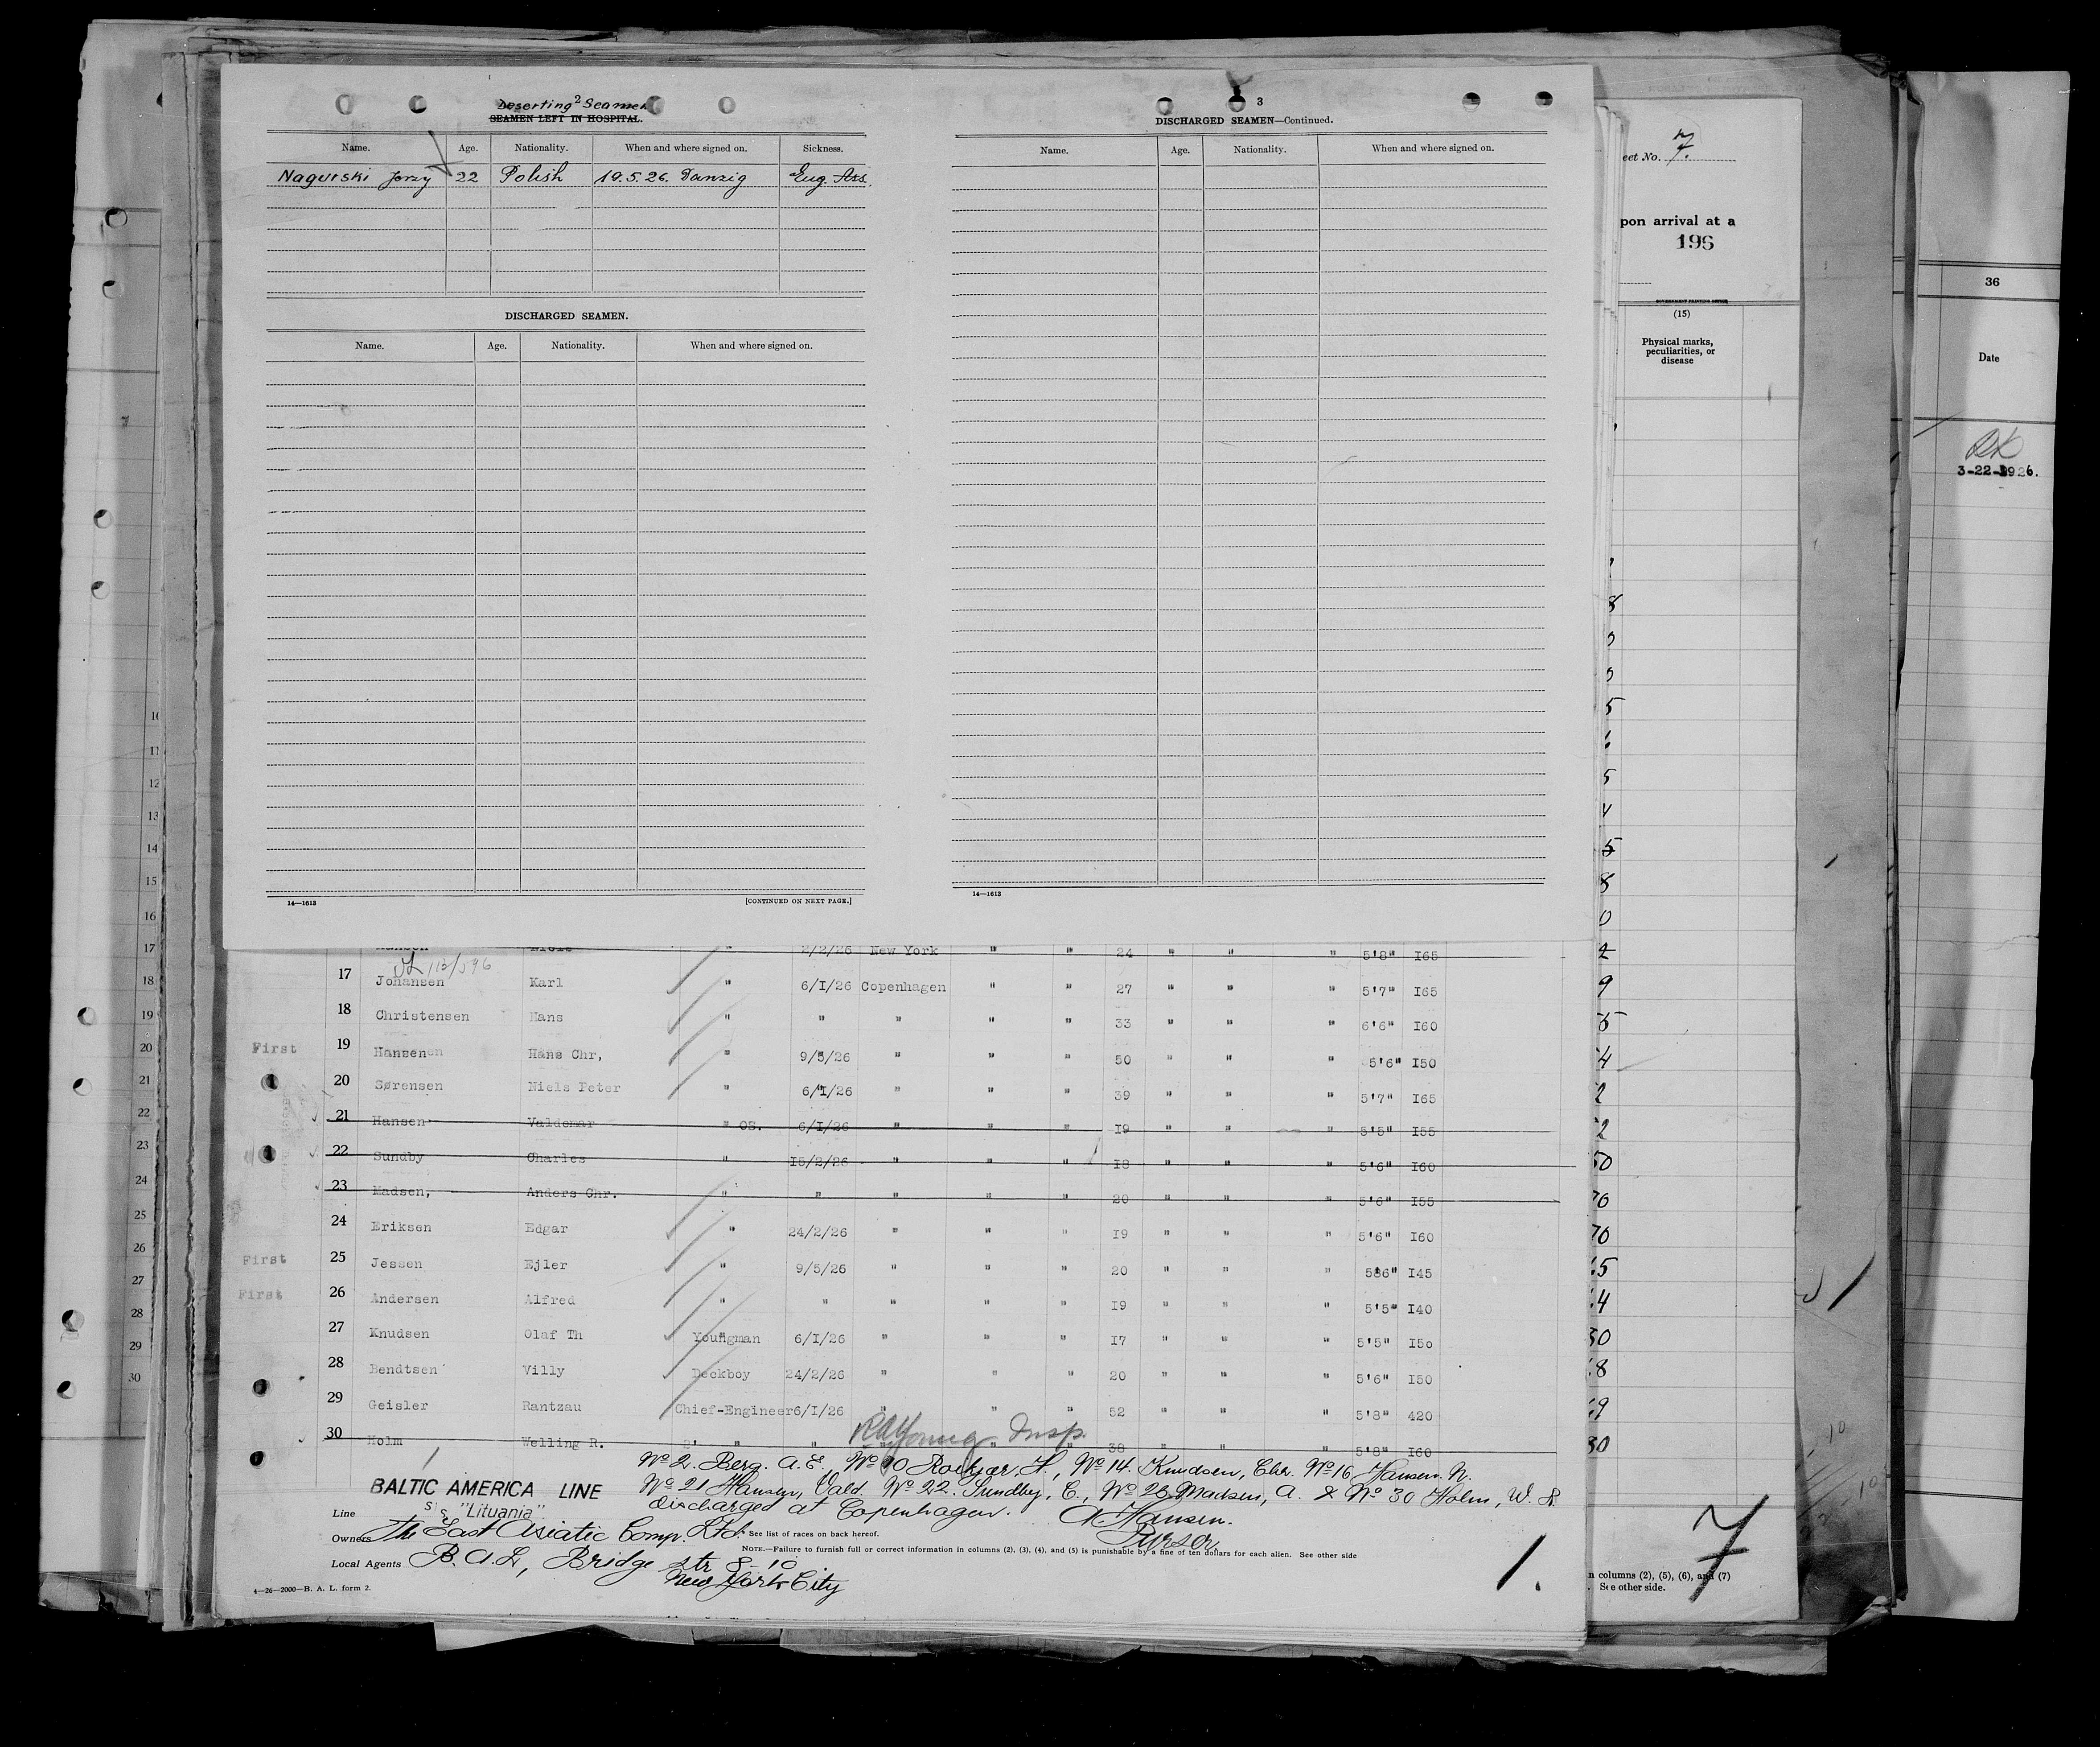 Deserting 2 Seamen
SEAMEN LEFT IN HOSPITAL.
Name. Age. Nationality. When and where signed on. Sickness.
Nagurski Jerzy 22 Polish 19.5.26. Danzig Eng. Ass.
DISCHARGED SEAMEN.
Name. Age. Nationality. When and where signed on.
14—1613 [CONTINUED ON NEXT PAGE.]
3
DISCHARGED SEAMEN—Continued.
Name. Age. Nationality. When and where signed on.
14—1613
eet No. 7.
pon arrival at a
196
GOVERNMENT PRINTING OFFICE
(15)
Physical marks, peculiarities, or disease
36
Date
3-22-1926.
2/2/26 New York " " 24 " " " 5'8" I65
17 Johansen Karl " 6/I/26 Copenhagen " " 27 " " " 5'7" I65
18 Christensen Hans " " " " " 33 " " " 6'6" I60
First 19 Hansen Hans Chr, " 9/5/26 " " " 50 " " " 5'6" I50
20 Sørensen Niels Peter " 6/I/26 " " " 39 " " " 5'7" I65
21 Hansen Valdemar " OS. 6/I/26 " " " I9 " " " 5'5" I55
22 Sundby Charles " I5/2/26 " " " I8 " " " 5'6" I60
23 Madsen, Anders Chr. " " " " " 20 " " " 5'6" I55
24 Eriksen Edgar " 24/2/26 " " " I9 " " " 5'6" I60
First 25 Jessen Ejler " 9/5/26 " " " 20 " " " 5'6" I45
First 26 Andersen Alfred " " " " " I9 " " " 5'5" I40
27 Knudsen Olaf Th Youngman 6/I/26 " " " I7 " " " 5'5" I5o
28 Bendtsen Villy Deckboy 24/2/26 " " " 20 " " " 5'6" I50
29 Geisler Rantzau Chief-Engineer 6/I/26 " " " 52 " " " 5'8" 420
30 Holm Welling R. 2' " " " " " 38 " " " 5'8" I60
Young Insp.
No 2. Berg. A.E., No 10 H., No 14. Knudsen, Chr. No 16 Hansen N.
No 21 Hansen, Vald. No 22. Sundby, C., No 23 Madsen, A. & No 30 Holm, W. R.
discharged at Copenhagen. Hansen.
Purser
BALTIC AMERICA LINE
Line S/S "Lituania"
Owners The East Asiatic Comp. Ltd. See list of races on back hereof.
NOTE.—Failure to furnish full or correct information in columns (2), (3), (4), and (5) is punishable by a fine of ten dollars for each alien. See other side
Local Agents B.A.L, Bridge Str 8-10
New York City
4—26—2000—B. A. L. form 2.
1.
n columns (2), (5), (6), and (7)
. See other side.
7